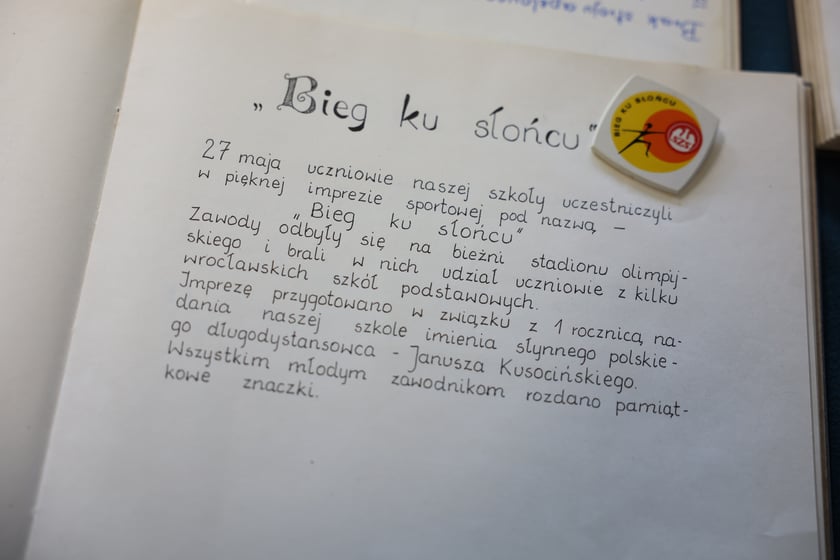 „Bieg ku słońcu"
BIEG KU SŁOŃCU
SZS
27 maja uczniowie naszej szkoły uczestniczyli
w pięknej imprezie sportowej pod nazwą –
„Bieg ku słońcu"
Zawody odbyły się na bieżni stadionu olimpij-
skiego i brali w nich udział uczniowie z kilku
wrocławskich szkół podstawowych.
Imprezę przygotowano w związku z 1 rocznicą na-
dania naszej szkole imienia słynnego polskie-
go długodystansowca - Janusza Kusocińskiego.
Wszystkim młodym zawodnikom rozdano pamiąt-
kowe znaczki.